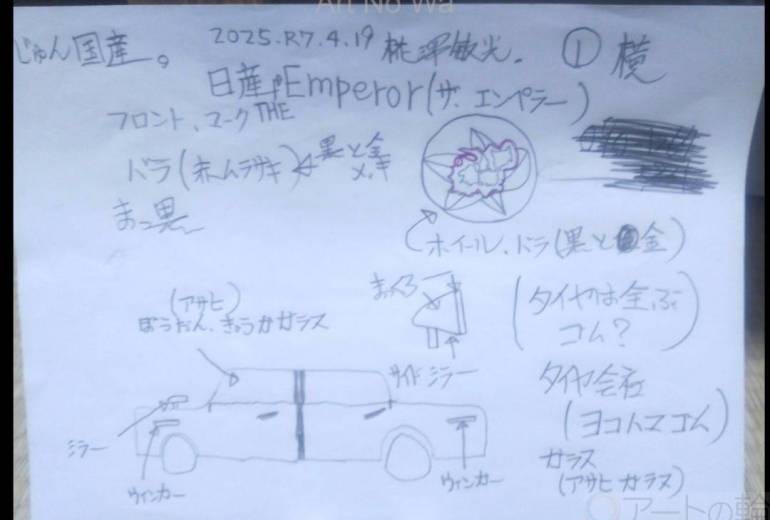 Art No Wa
じゅん国産。 2025.R7.4.19 桃澤敏光. ① 横
日産 Emperor(ザ.エンペラー)
フロント、マークTHE
ドラ(赤、ムラサキ) 黒と金
メッキ
まっ黒
ホイール.ドラ(黒と金)
まっくろ
(タイヤは全ぶ
ゴム?)
(アサヒ)
ぼうだん、きょうかガラス
サイドミラー
タイヤ会社
(ヨコハマゴム)
ミラー
ガラス
(アサヒガラス)
ウィンカー
ウィンカー
アートの輪